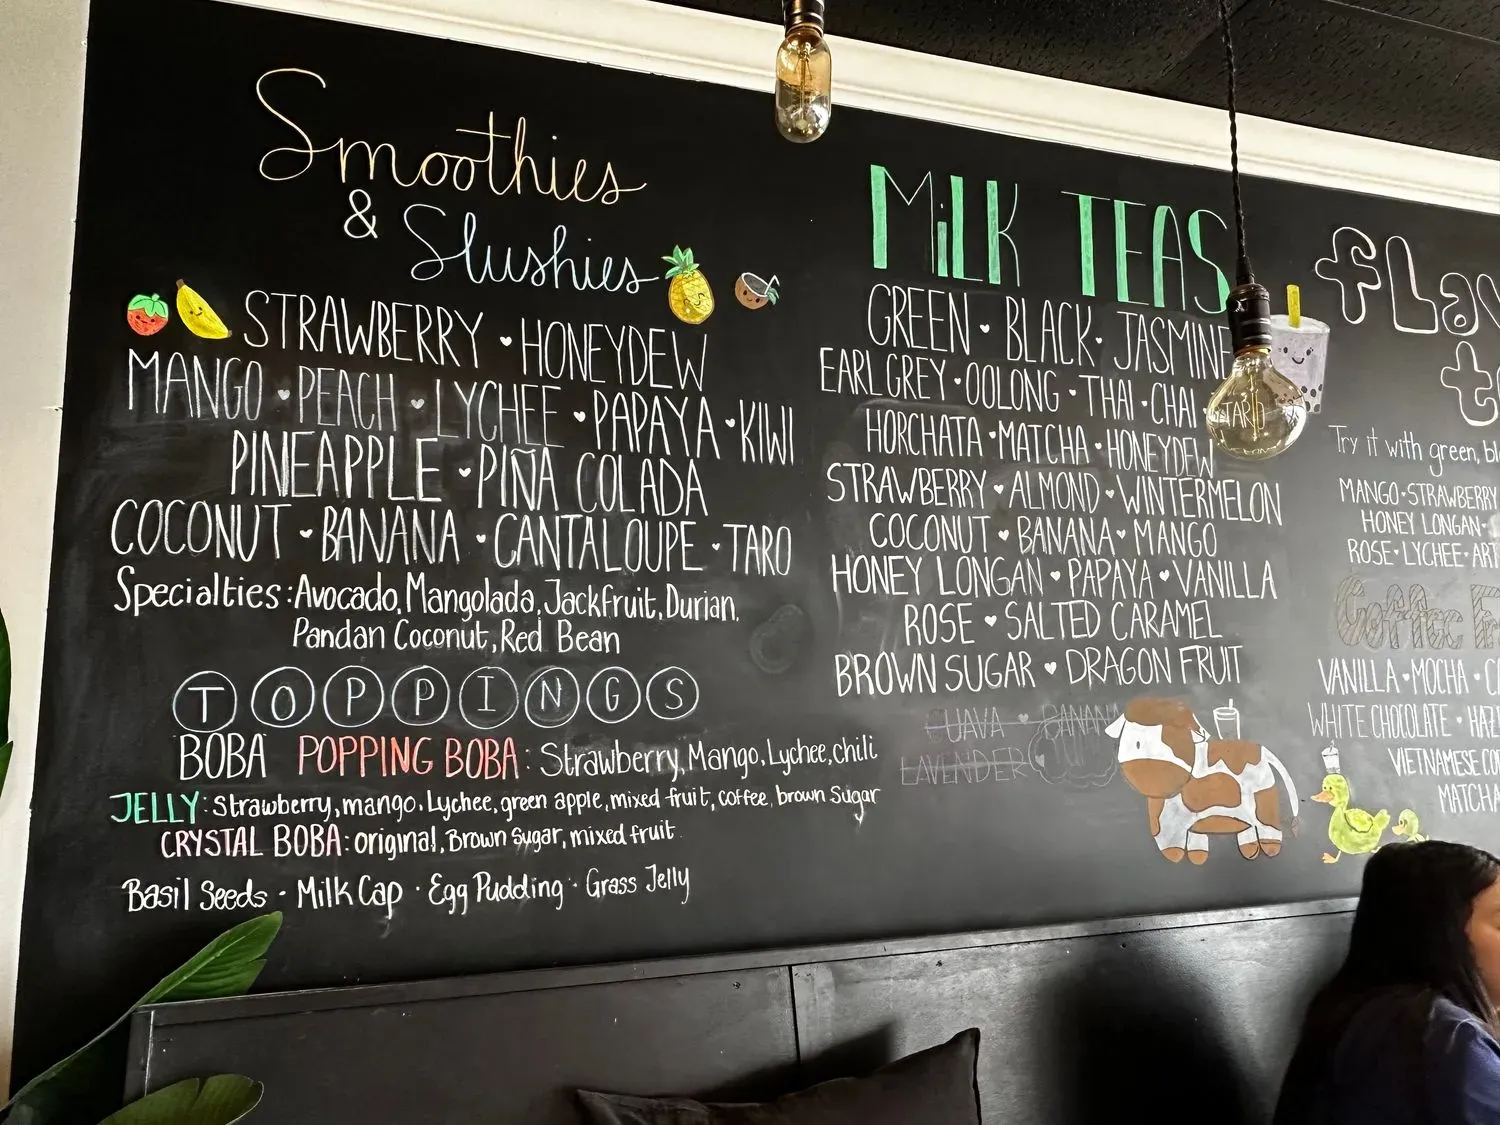 Smoothies
& Slushies
STRAWBERRY • HONEYDEW
MANGO • PEACH • LYCHEE • PAPAYA • KIWI
PINEAPPLE • PIÑA COLADA
COCONUT • BANANA • CANTALOUPE • TARO
Specialties: Avocado, Mangolada, Jackfruit, Durian,
Pandan Coconut, Red Bean
TOPPINGS
BOBA POPPING BOBA: Strawberry, Mango, Lychee, chili
JELLY: strawberry, mango, Lychee, green apple, mixed fruit, coffee, brown Sugar
CRYSTAL BOBA: original, Brown Sugar, mixed fruit
Basil Seeds • Milk Cap • Egg Pudding • Grass Jelly
MiLK TEAS
GREEN • BLACK • JASMINE
EARL GREY • OOLONG • THAI • CHAI • TARO
HORCHATA • MATCHA • HONEYDEW
STRAWBERRY • ALMOND • WINTERMELON
COCONUT • BANANA • MANGO
HONEY LONGAN • PAPAYA • VANILLA
ROSE • SALTED CARAMEL
BROWN SUGAR • DRAGON FRUIT
GUAVA • BANANA
LAVENDER
Try it with green,
MANGO • STRAWBERRY
HONEY LONGAN •
ROSE • LYCHEE •
Coffee
VANILLA • MOCHA •
WHITE CHOCOLATE •
VIETNAMESE
MATCHA